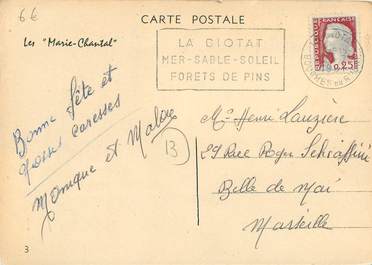 6€
CARTE POSTALE
Les "Marie-Chantal"
LA CIOTAT
MER-SABLE-SOLEIL
FORETS DE PINS
REPUBLIQUE FRANÇAISE
0,25
BOUCHES DU RHONE
Bonne fête et
grosses caresses
Monique et
13
Mr Henri Lauzière
29 Rue Roger Schiaffini
Belle de Mai
Marseille
3